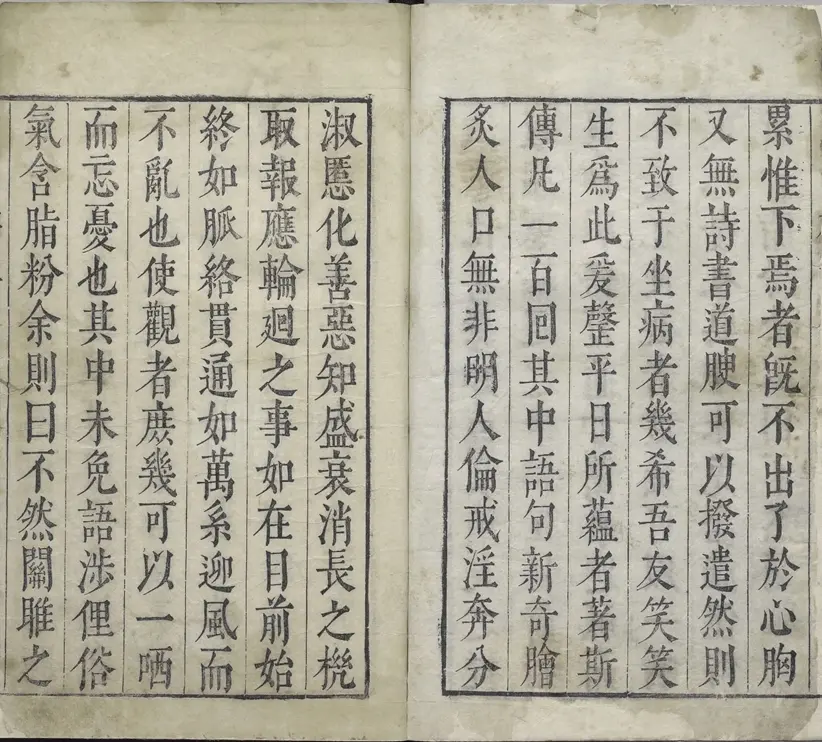 累惟下焉者旣不出了於心胸
又無詩書道腴可以撥遣然則
不致于坐病者幾希吾友笑笑
生爲此爰罄平日所蘊者著斯
傳凡一百回其中語句新奇膾
炙人口無非明人倫戒淫奔分
淑慝化善惡知盛衰消長之機
取報應輪廻之事如在目前始
終如脈絡貫通如萬系迎風而
不亂也使觀者庶幾可以一哂
而忘憂也其中未免語涉俚俗
氣含脂粉余則曰不然關雎之